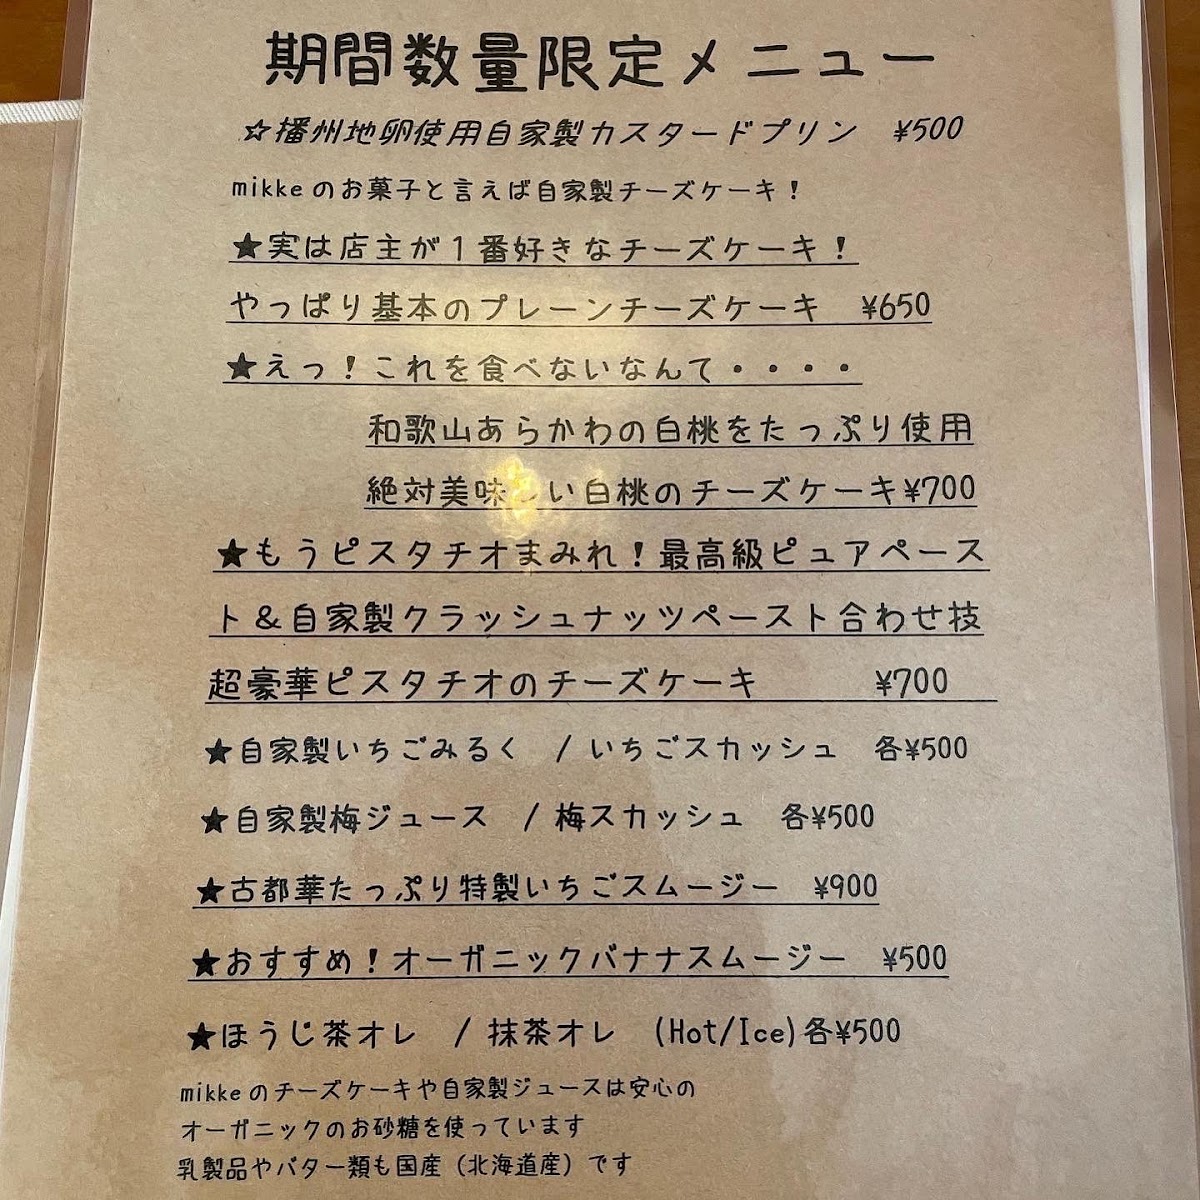 期間数量限定メニュー
☆播州地卵使用自家製カスタードプリン ¥500
mikkeのお菓子と言えば自家製チーズケーキ！
★実は店主が１番好きなチーズケーキ！
やっぱり基本のプレーンチーズケーキ ¥650
★えっ！これを食べないなんて・・・・
和歌山あらかわの白桃をたっぷり使用
絶対美味しい白桃のチーズケーキ¥700
★もうピスタチオまみれ！最高級ピュアペース
ト＆自家製クラッシュナッツペースト合わせ技
超豪華ピスタチオのチーズケーキ ¥700
★自家製いちごみるく / いちごスカッシュ 各¥500
★自家製梅ジュース / 梅スカッシュ 各¥500
★古都華たっぷり特製いちごスムージー ¥900
★おすすめ！オーガニックバナナスムージー ¥500
★ほうじ茶オレ / 抹茶オレ (Hot/Ice)各¥500
mikkeのチーズケーキや自家製ジュースは安心の
オーガニックのお砂糖を使っています
乳製品やバター類も国産（北海道産）です